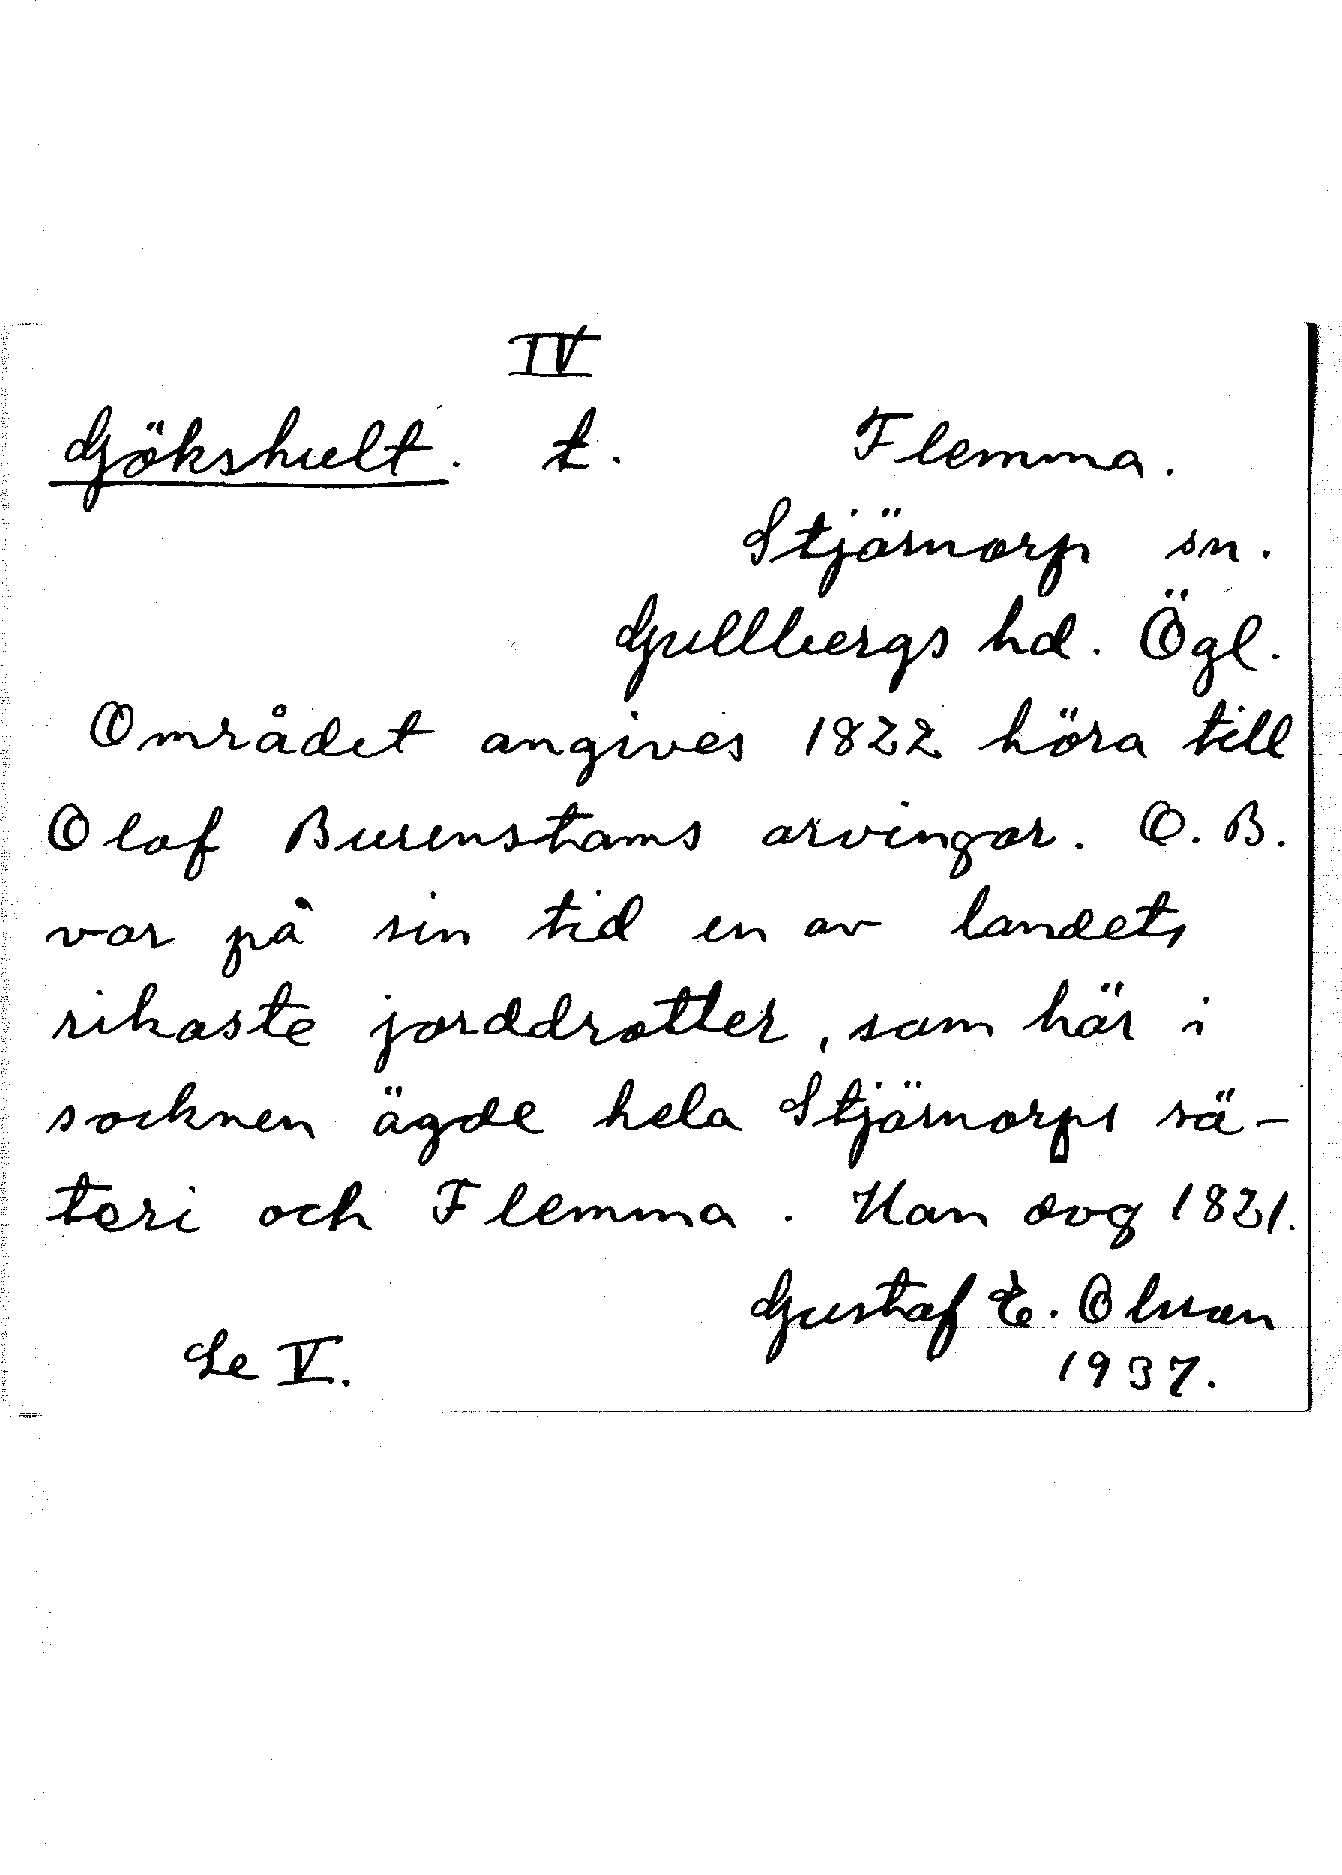 IV
Gökshult. t. Flemma.
Stjärnorp sn.
Gullbergs hd. Ögl.
Området angives 1822 höra till
Olof Burenstams arvingar. O. B.
var på sin tid en av landets
rikaste jorddrotter, som här i
socknen ägde hela Stjärnorps sä-
teri och Flemma. Han dog 1821.
Gustaf E. Olsson
Se V. 1937.